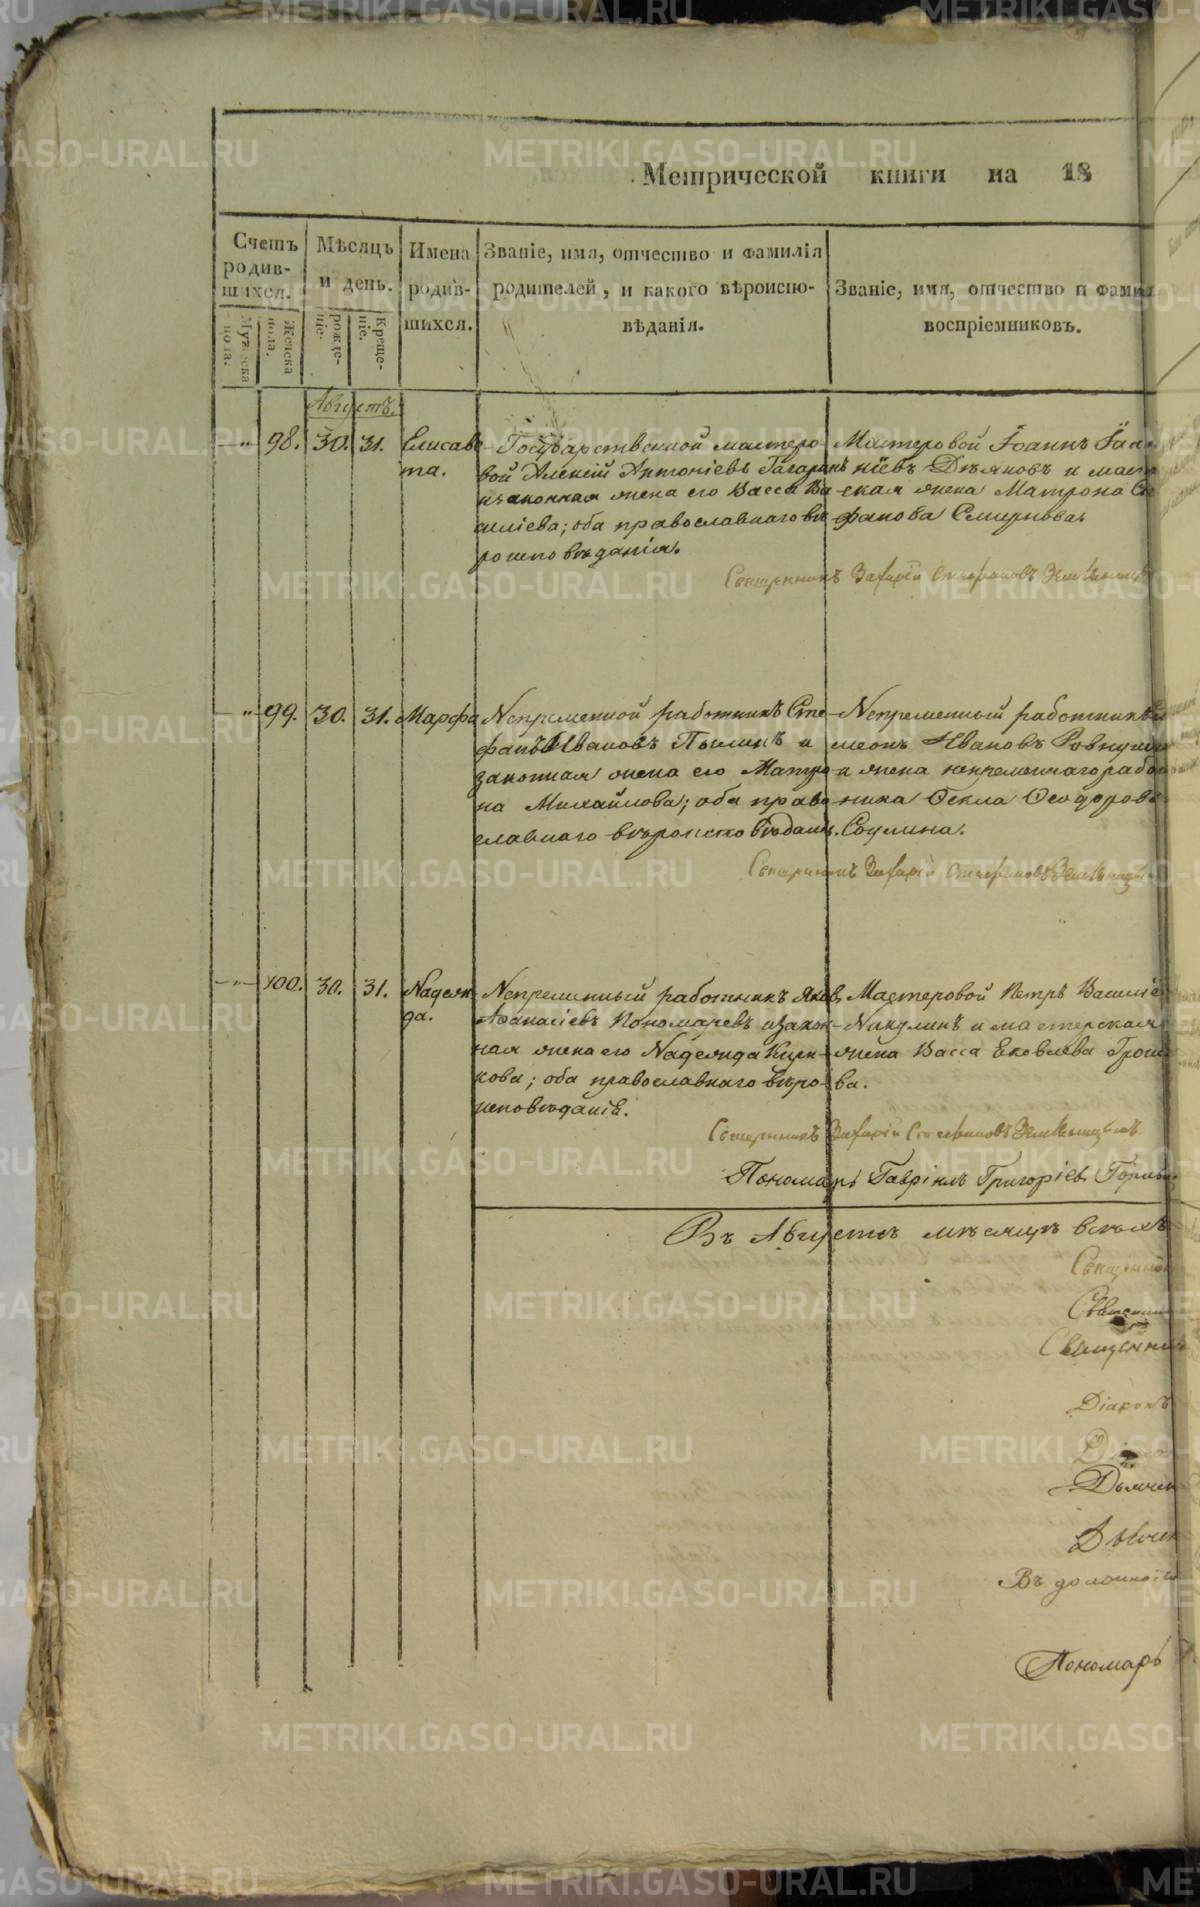 Метрической книги на 18
Счетъ родив- шихся.
Мужеска пола.
Женска пола.
Мѣсяцъ и день.
рожде- ніе.
Креще- ніе.
Имена родив- шихся.
Званіе, имя, отчество и фамилія
родителей, и какого вѣроиспо-
вѣданія.
Званіе, имя, отчество и фамил
воспріемниковъ.
Августъ.
98. 30. 31. Елисаве
та.
Государственной мастеро-
вой Алексій Антоніевъ Гагаринъ
и законная жена его Васса Ва
силіева; оба православнаго вѣ
роисповѣданія.
Мастеровой Іоаннъ
ніевъ Дьяковъ и мас
ская жена Матрона С
фанова Смирнова.
Священникъ Захарій Стефановъ
99. 30. 31. Марфа
Непременной работникъ Сте-
фанъ Ивановъ Пылинъ и
законная жена его Матро
на Михайлова; оба право
славнаго вѣроисповѣдан.
Непременный работникъ
меонъ Ивановъ
и жена непременнаго рабо
ника Ѳекла Ѳеодорова
Соулина.
Священникъ Захарій Стефановъ
100. 30. 31. Надеж
да.
Непременный работникъ Яков.
Аѳанасіевъ Пономаревъ и закон-
ная жена его Надежда Кири-
кова; оба православнаго вѣро-
исповѣданія.
Мастеровой Петръ Василіе
Никулинъ и мастерская
жена Васса Ековлева
ва.
Священникъ Захарій Стефановъ
Пономарь Гавріилъ Григоріев.
Въ Августѣ мѣсяцѣ всѣхъ
Священник
Священник
Священник
Діаконъ
Дьячек
Дьячек
Въ должности
Пономарь
METRIKI.GASO-URAL.RU